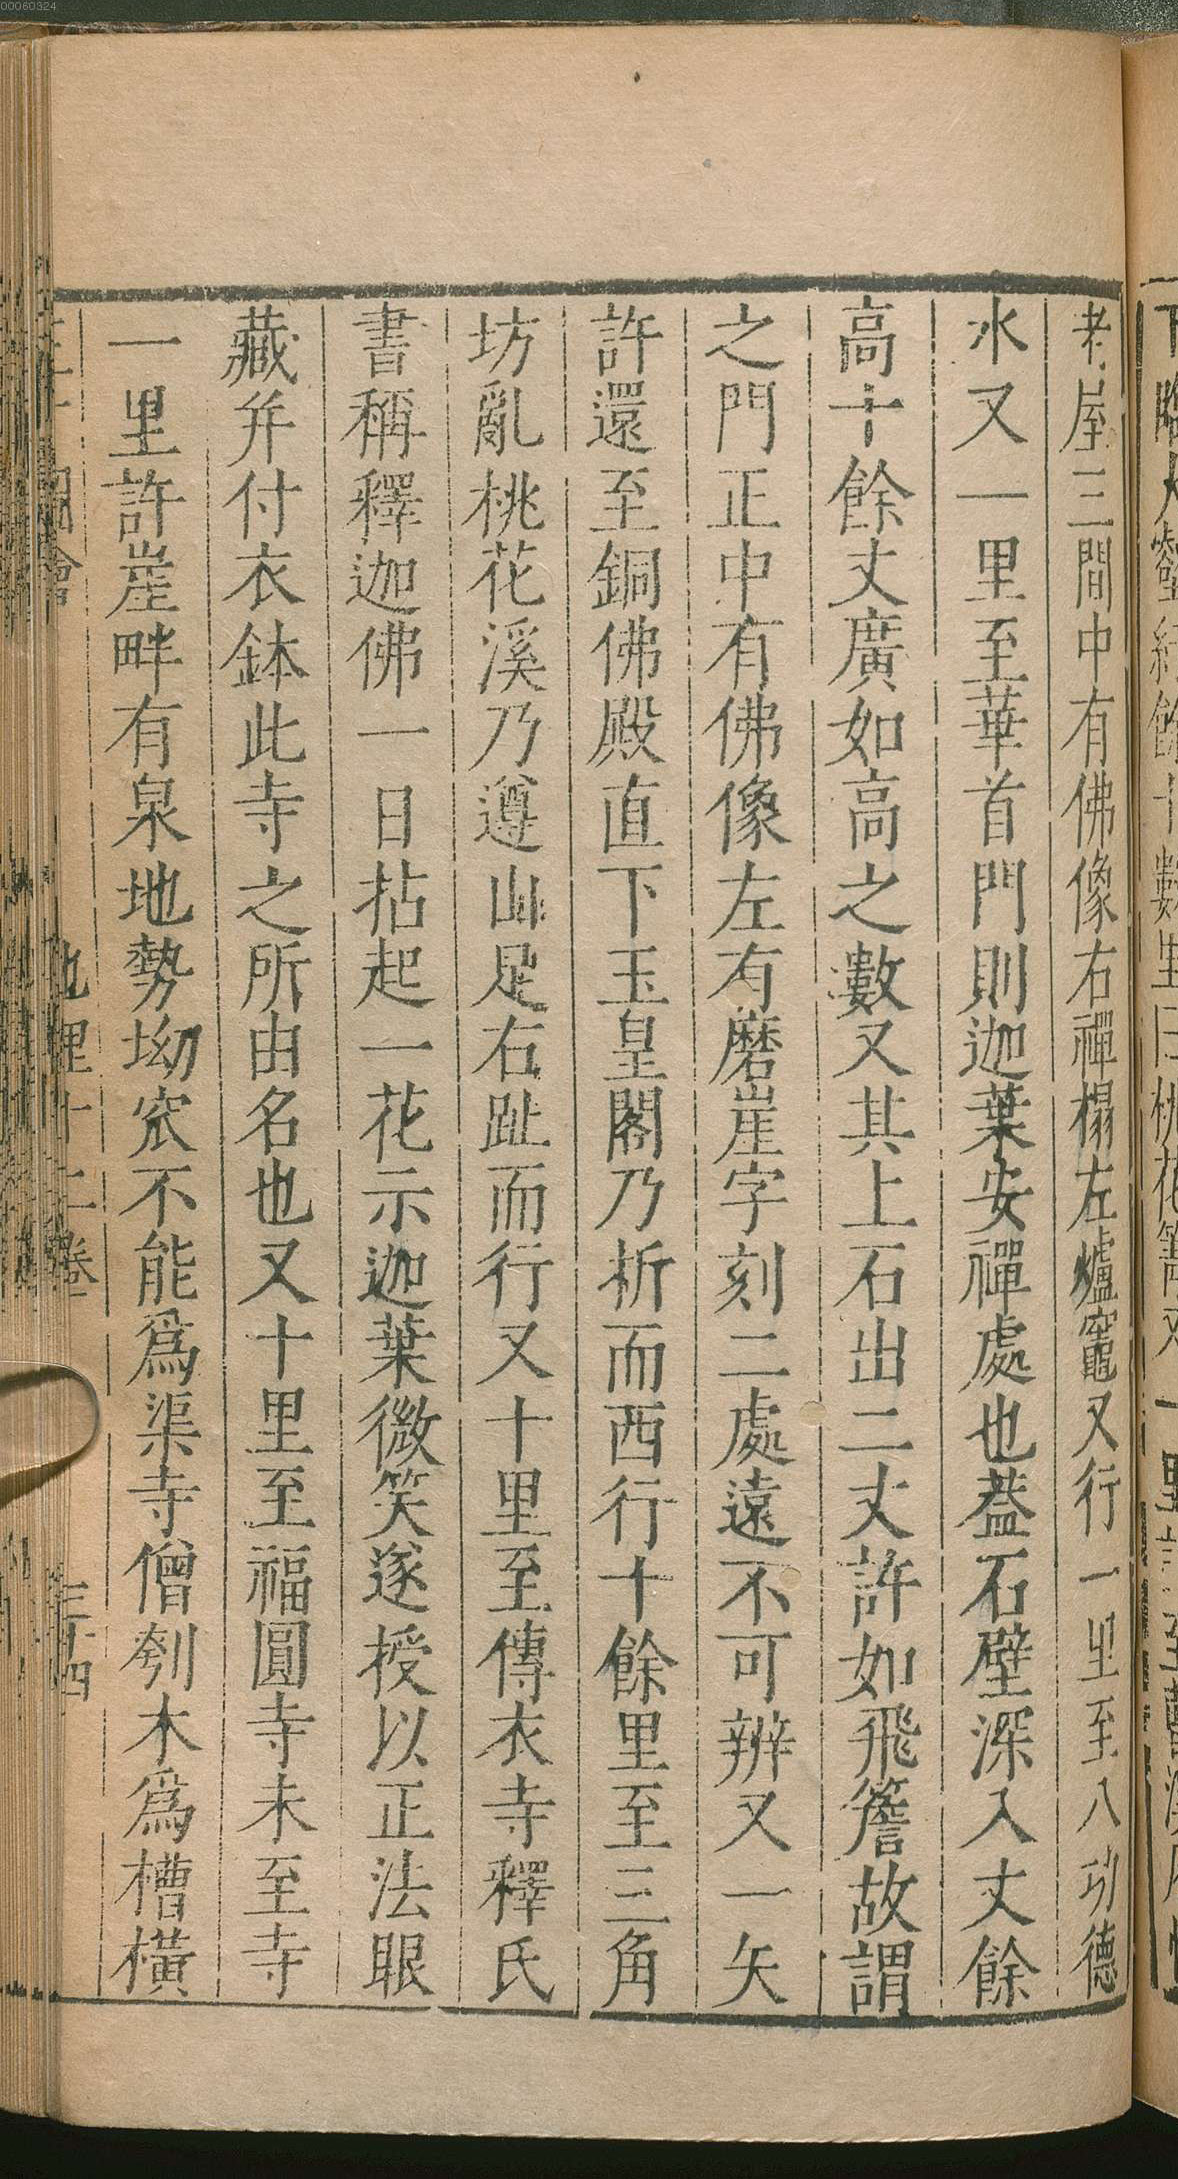 00060324
老屋三間中有佛像右禪榻左爐竈又行一里至八功德
水又一里至華首門則迦葉安禪處也葢石壁深入丈餘
高十餘丈廣如高之數又其上石出二丈許如飛簷故謂
之門正中有佛像左有磨崖字刻二處遠不可辨又一矢
許還至銅佛殿直下玉皇閣乃折而西行十餘里至三角
坊亂桃花溪乃遵山足右趾而行又十里至傳衣寺釋氏
書稱釋迦佛一日拈起一花示迦葉微笑遂授以正法眼
藏幷付衣鉢此寺之所由名也又十里至福圓寺未至寺
一里許崖畔有泉地勢坳窊不能爲渠寺僧刳木爲槽橫
地理十二卷
三十四